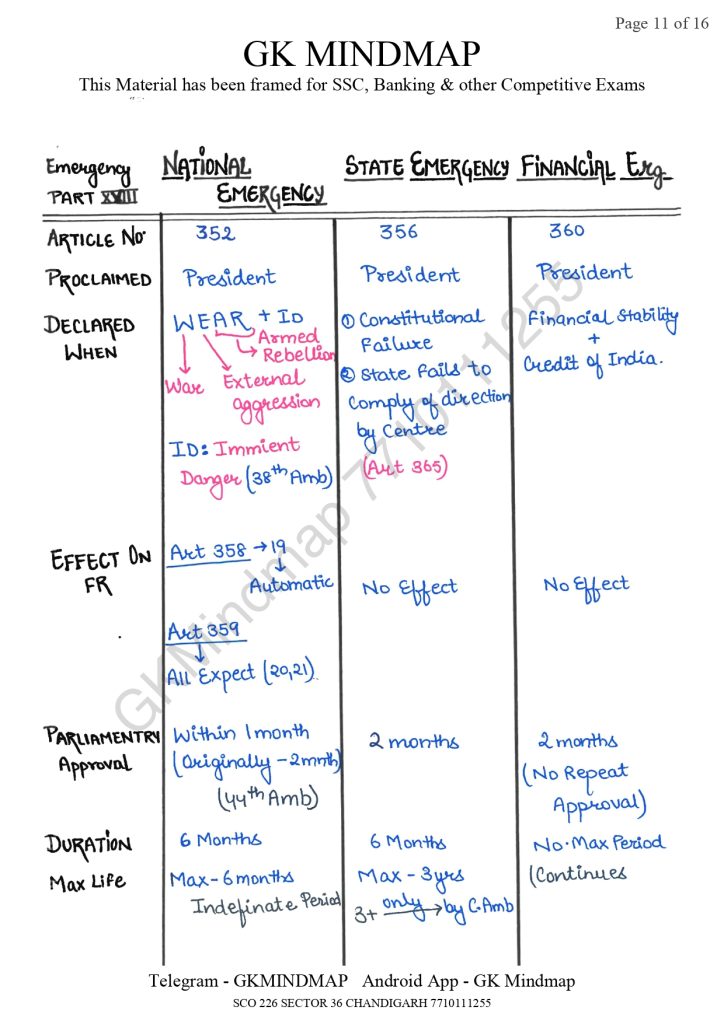 Page 11 of 16
GK MINDMAP
This Material has been framed for SSC, Banking & other Competitive Exams
Emergency
PART XVIII
NATIONAL
EMERGENCY
STATE EMERGENCY
FINANCIAL Erg
ARTICLE No.
352
356
360
PROCLAIMED
President
President
President
DECLARED
WHEN
WEAR + ID
Armed
Rebellion
War
External
aggression
ID: Immient
Danger (38th Amb)
① Constitutional
Failure
② State fails to
comply of direction
by Centre
(Art 365)
Financial Stability
+
Credit of India.
EFFECT ON
FR
Art 358 → 19
Automatic
Art 359
All Expect (20,21)
No Effect
No Effect
PARLIAMENTRY
Approval
Within 1 month
(Originally - 2 mnth)
(44th Amb)
2 months
2 months
(No Repeat
Approval)
DURATION
6 Months
6 Months
No. Max Period
MAX LIFE
Max - 6 months
Indefinate Period
Max - 3 yrs
3+ only → by C.Amb
(Continues
GKMindmap 7710111255
Telegram - GKMINDMAP Android App - GK Mindmap
SCO 226 SECTOR 36 CHANDIGARH 7710111255